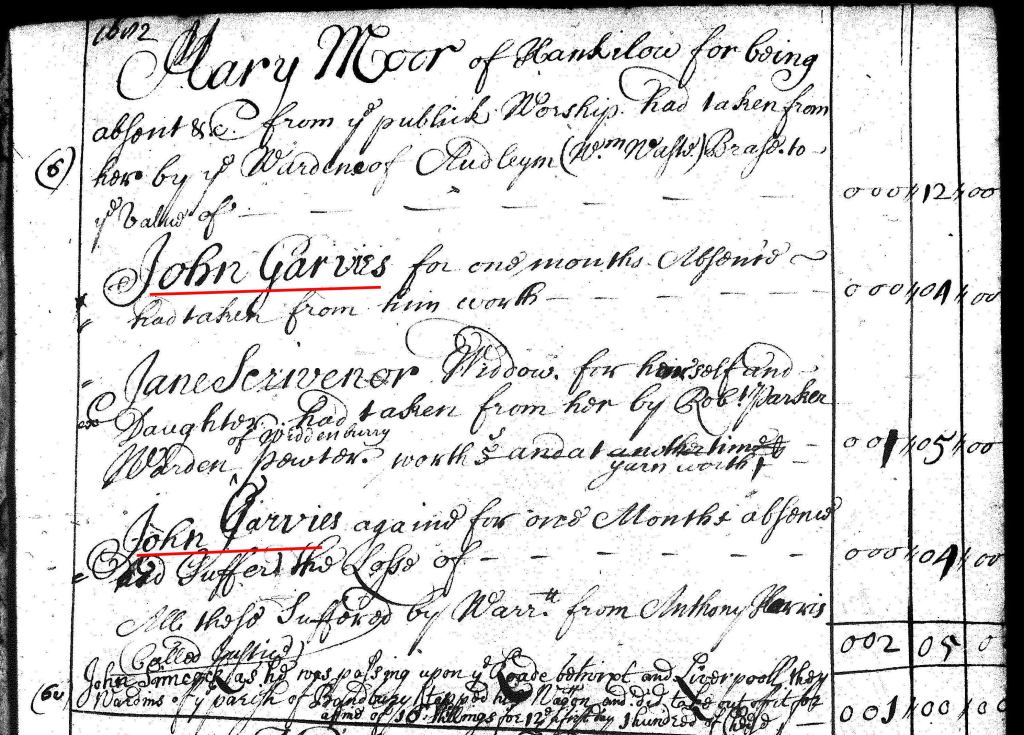 1682
Mary Moor of Hankilow for being
absent &c. from ye publick Worship. had taken from
(6) her by ye Wardens of Audleym (Wm Waste) Brase. to
ye Value of — — — — 000 " 12 " 00
John Garvies for one months Absence
had taken from him worth — — — — 000 " 04 " 00
Jane Scrivenor Widdow. for herself and
Daughter. had taken from her by Robt Parker
of Widdenburry
Warden Pewter. worth 5s and at another time
yarn worth — 001 " 05 " 00
John Garvies againe for one Months absence
and Suffer'd the Losse of — — — — 000 " 04 " 00
All these Suffered by Warrtt from Anthony Harris
Called Justice) 002 05 0
John Simcock as he was passing upon ye Roade betwixt and Liverpooll they
(60) Wardens of ye parish of stopped his Wagon and did take out of it for
a fine of 10 shillings for 12d a first day 1 hundred of Cheese 001 " 00 " 00